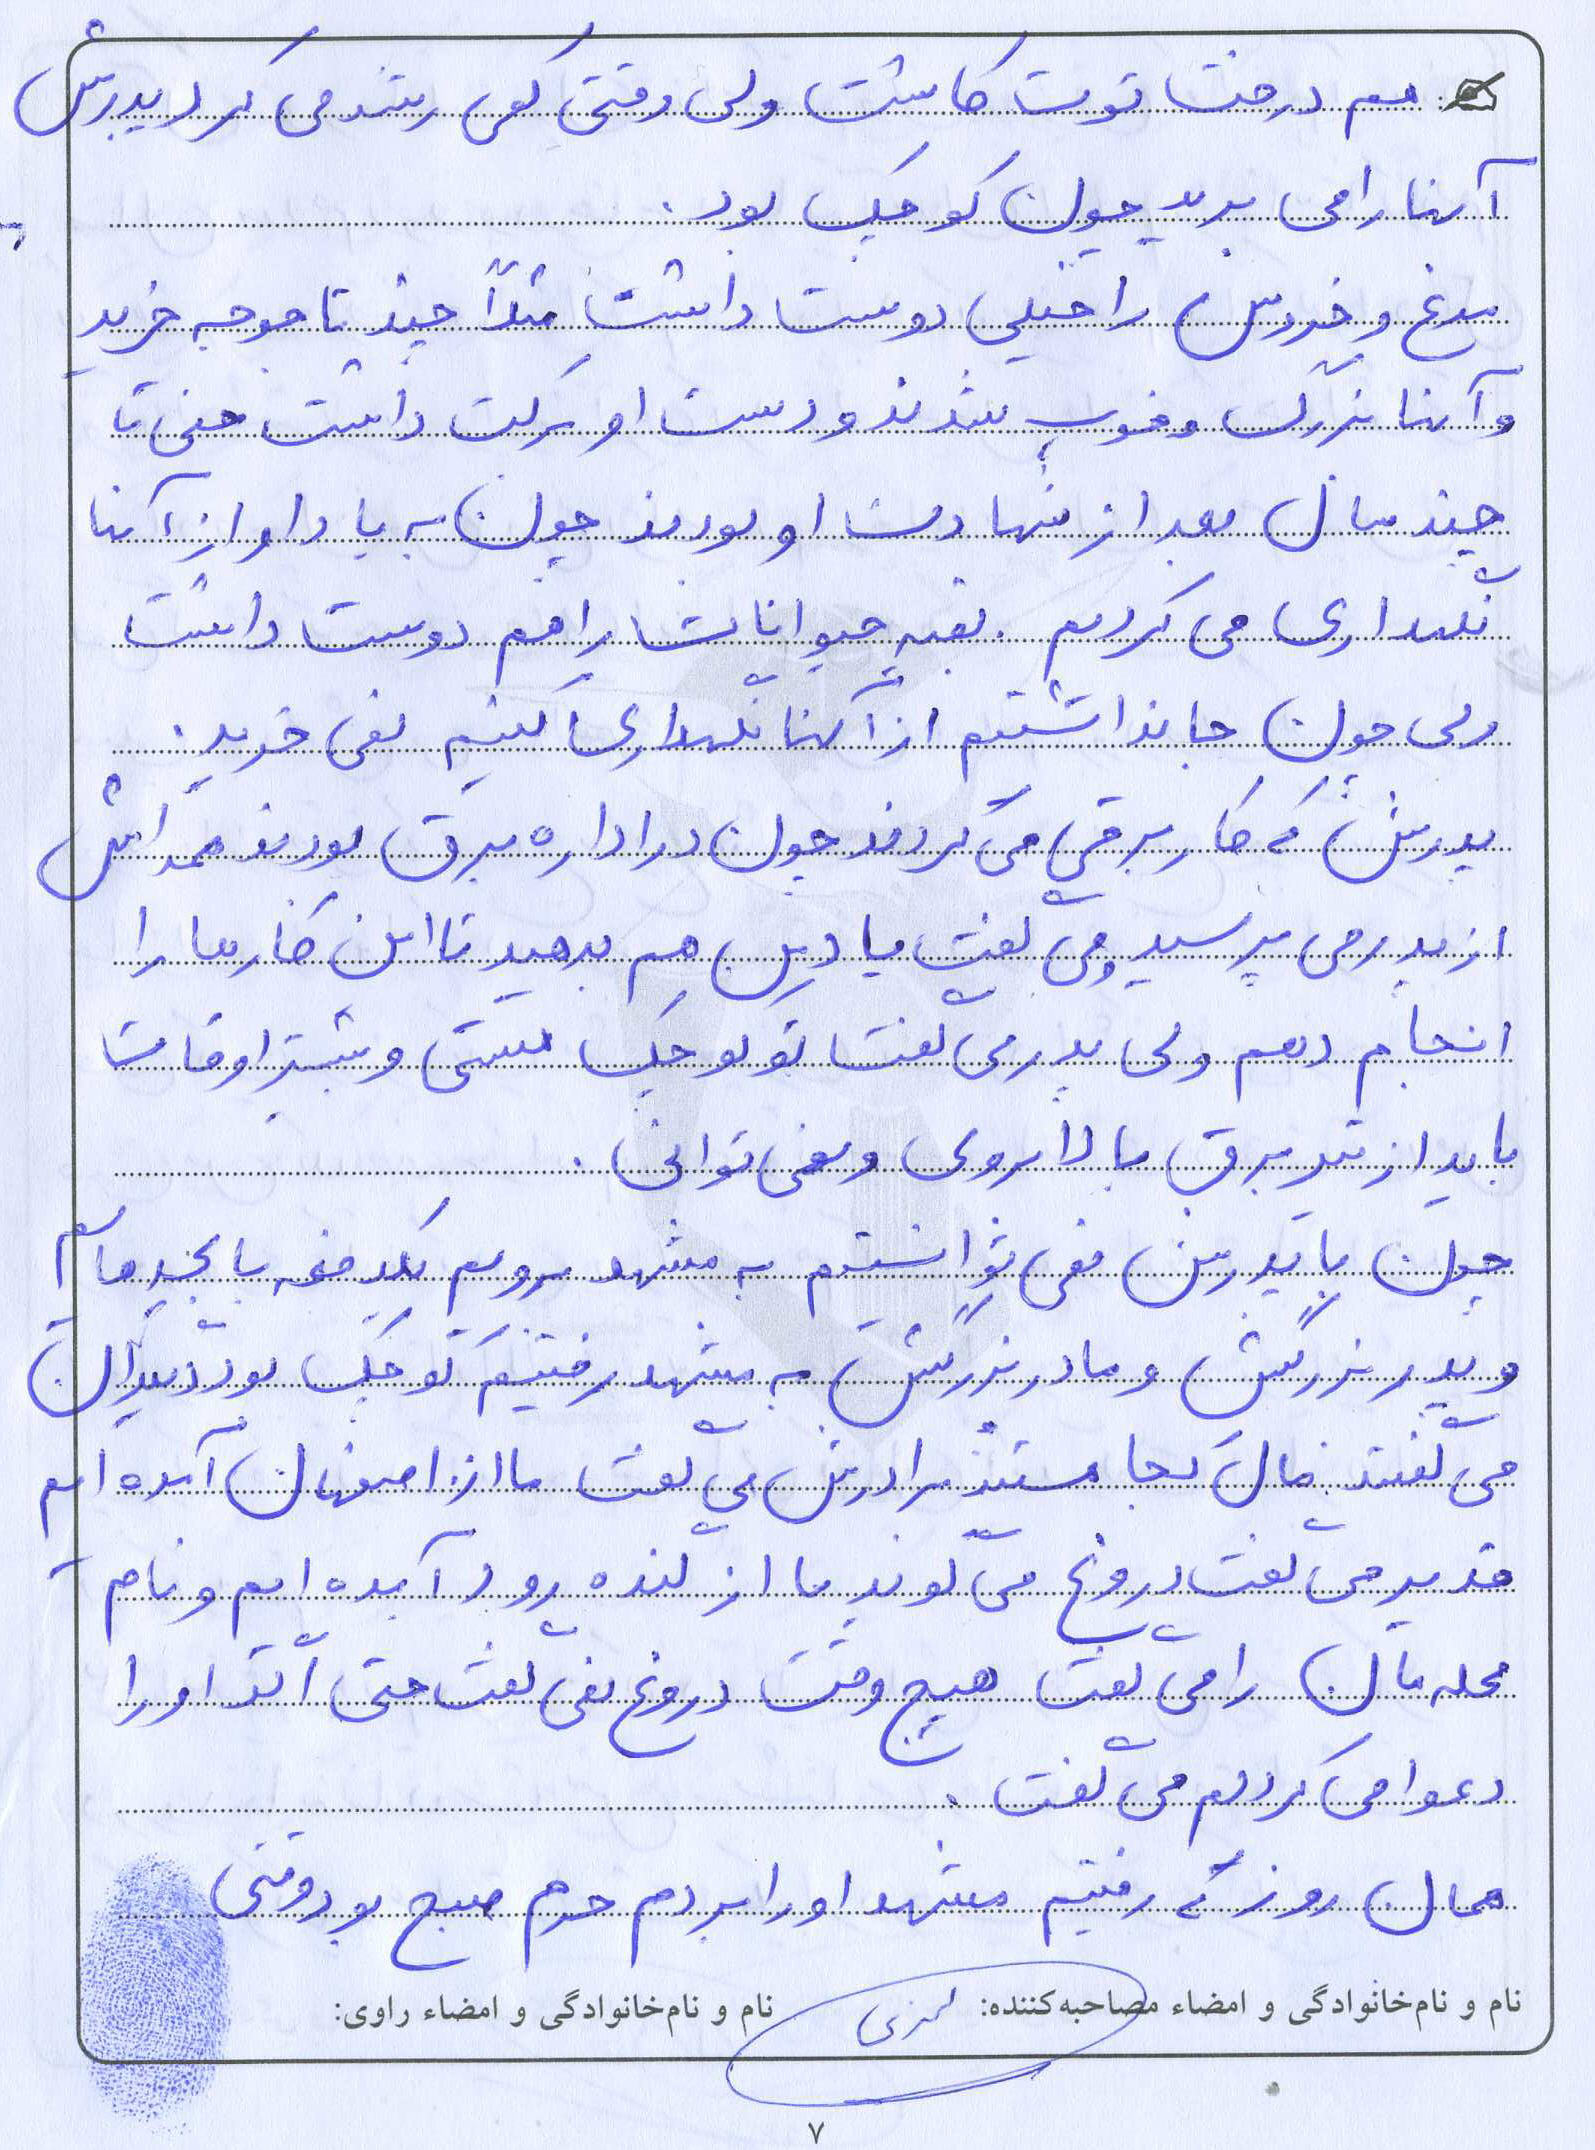 هم درخت توت کاشت ولی وقتی کمی رشد می کرد پدرش
آنها را می برید چون کوچک بود.
مرغ و خروس را خیلی دوست داشت مثلاً چند تا جوجه خرید
و آنها بزرگ و خوب شدند و دست او برکت داشت حتی تا
چند سال بعد از شهادت او بودند چون به یاد او از آنها
نگهداری می کردیم. بقیه حیوانات را هم دوست داشت
ولی چون جا نداشتیم از آنها نگهداری کنیم نمی خرید.
پدرش که کار برقی می کردند چون در اداره برق بودند همه اش
از پدر می پرسید و می گفت یاد من هم بدهید تا این کارها را
انجام دهم ولی پدر می گفت تو کوچک هستی و بیشتر اوقات
باید از تیر برق بالا بروی و نمی توانی.
چون با پدرش نمی توانستیم به مشهد برویم یکدفعه با بچه هایم
و پدر بزرگش و مادر بزرگش به مشهد رفتیم کوچک بود دیگران
می گفتند مال کجا هستند برادرش می گفت ما از اصفهان آمده ایم
قدیر می گفت دروغ می گوید ما از لنده رود آمده ایم و نام
محله مان را می گفت هیچ وقت دروغ نمی گفت حتی اگر او را
دعوا می کردیم می گفت.
همان روز که رفتیم مشهد او را بردم حرم صبح بود وقتی
نام و نام‌خانوادگی و امضاء مصاحبه‌کننده: نام و نام‌خانوادگی و امضاء راوی:
۷